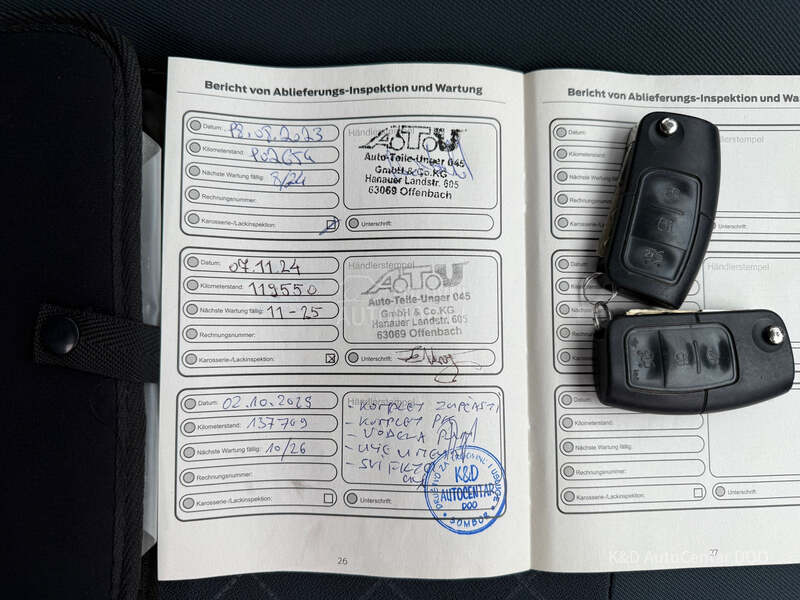 Bericht von Ablieferungs-Inspektion und Wartung
Datum: 18.08.2023
Kilometerstand:
Nächste Wartung fällig: 8/24
Rechnungsnummer:
Karosserie-/Lackinspektion:
Händlerstempel
Auto-Teile-Unger 045
GmbH & Co.KG
Hanauer Landstr. 605
63069 Offenbach
Unterschrift:
Datum: 07.11.24
Kilometerstand: 119550
Nächste Wartung fällig: 11-25
Rechnungsnummer:
Karosserie-/Lackinspektion: x
Händlerstempel
Auto-Teile-Unger 045
GmbH & Co.KG
Hanauer Landstr. 605
63069 Offenbach
Unterschrift:
Datum: 02.10.2025
Kilometerstand: 137709
Nächste Wartung fällig: 10/26
Rechnungsnummer:
Karosserie-/Lackinspektion:
Händlerstempel
- KOMPLET ZUPČASTI
- KOMPLET
- VODENA
- ULJE U
- SVI
K&D
AUTOCENTAR
DOO
SOMBOR
Unterschrift:
26
Bericht von Ablieferungs-Inspektion und Wa
Datum:
Kilometerstand:
Nächste Wartung fällig:
Rechnungsnummer:
Karosserie-/Lackinspektion:
Datum:
Kilometerstand:
Nächste
Händlerstempel
Datum:
Kilometerstand:
Nächste Wartung fällig:
Rechnungsnummer:
Karosserie-/Lackinspektion:
Unterschrift:
27
K&D AutoCentar DOO